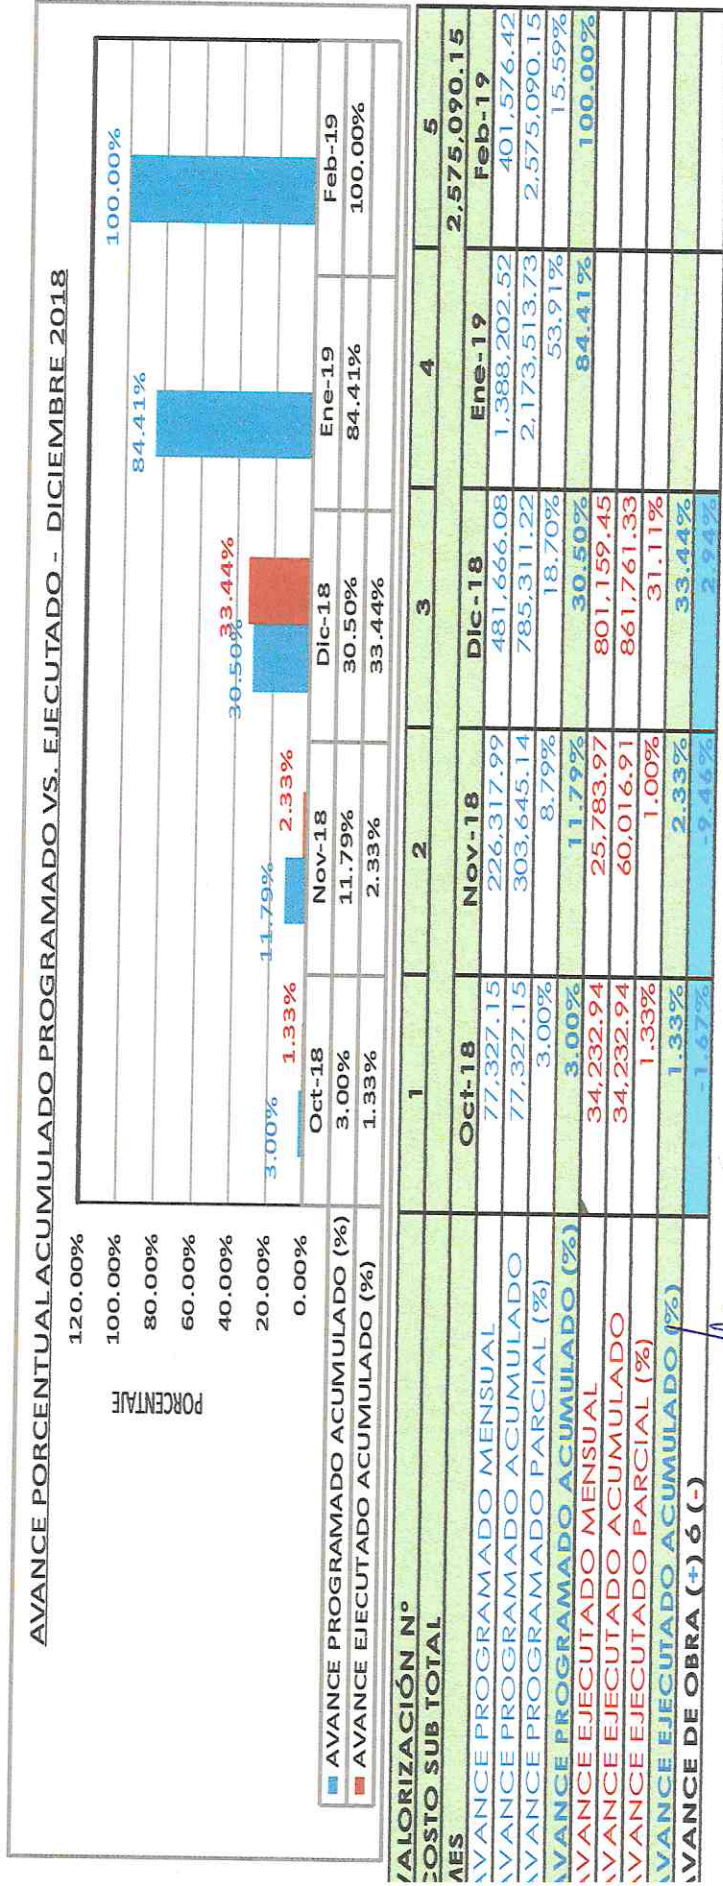 AVANCE PORCENTUAL ACUMULADO PROGRAMADO VS. EJECUTADO - DICIEMBRE 2018
PORCENTAJE
120.00%
100.00%
80.00%
60.00%
40.00%
20.00%
0.00%
3.00% 1.33% 11.79% 2.33% 30.50% 33.44% 84.41% 100.00%
Oct-18 Nov-18 Dic-18 Ene-19 Feb-19
AVANCE PROGRAMADO ACUMULADO (%) 3.00% 11.79% 30.50% 84.41% 100.00%
AVANCE EJECUTADO ACUMULADO (%) 1.33% 2.33% 33.44%
VALORIZACIÓN N° 1 2 3 4 5
COSTO SUB TOTAL 2,575,090.15
MES Oct-18 Nov-18 Dic-18 Ene-19 Feb-19
AVANCE PROGRAMADO MENSUAL 77,327.15 226,317.99 481,666.08 1,388,202.52 401,576.42
AVANCE PROGRAMADO ACUMULADO 77,327.15 303,645.14 785,311.22 2,173,513.73 2,575,090.15
AVANCE PROGRAMADO PARCIAL (%) 3.00% 8.79% 18.70% 53.91% 15.59%
AVANCE PROGRAMADO ACUMULADO (%) 3.00% 11.79% 30.50% 84.41% 100.00%
AVANCE EJECUTADO MENSUAL 34,232.94 25,783.97 801,159.45
AVANCE EJECUTADO ACUMULADO 34,232.94 60,016.91 861,761.33
AVANCE EJECUTADO PARCIAL (%) 1.33% 1.00% 31.11%
AVANCE EJECUTADO ACUMULADO (%) 1.33% 2.33% 33.44%
AVANCE DE OBRA (+) ó (-) -1.67% -9.46% 2.94%